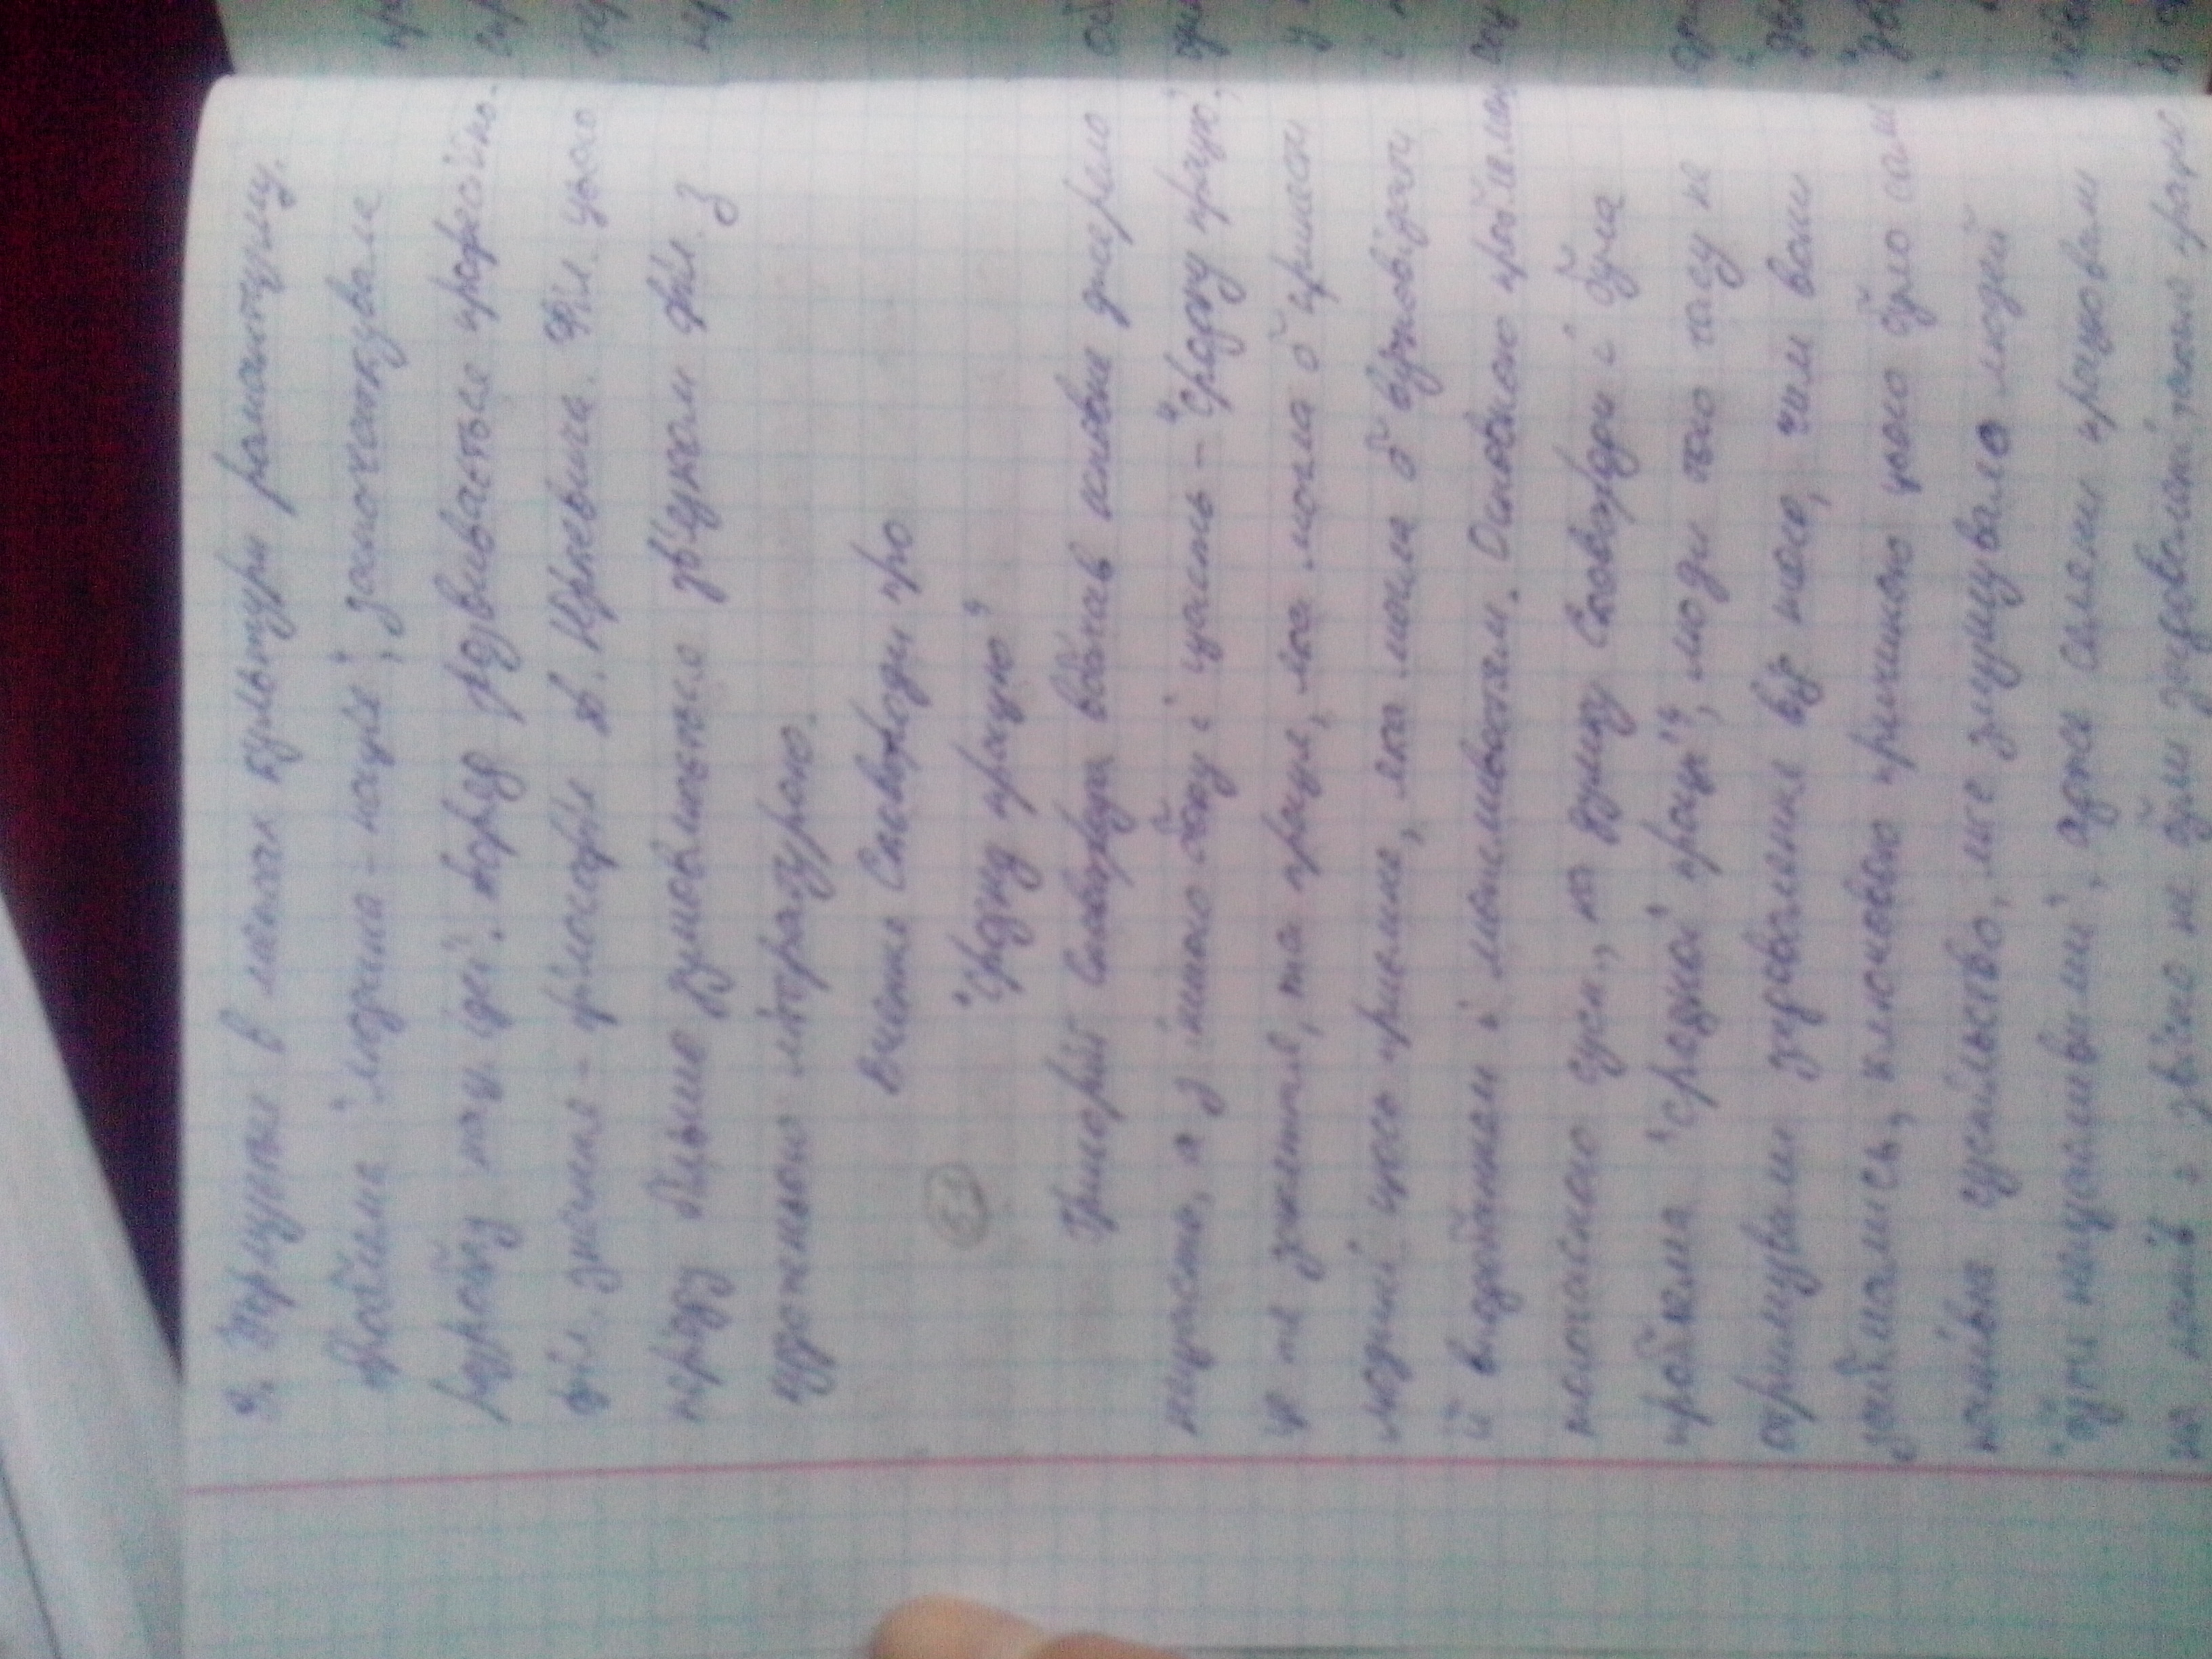 3. Формується в межах культури романтизму.
Проблема "людина - нація", започаткувала
розробку нац. ідеї. Поряд розвивається професійно-
філ. знання - філософія П. Юркевича. Філ. цього
періоду більше зумовлюється зв'язком філ. з
художньою літературою.
Вчення Сковороди про
"Сродну працю"
Григорій Сковорода вбачав основне джерело
нещасть, а з іншого боку і щасть - "сродну працю",
це те заняття, та праця, яка могла б принести
людині щось приємне, яка могла б відповідати
її вподобанням і можливостям. Основною проблемою
тогочасного сусп., на думку Сковороди і була
проблема "сродної праці", люди того часу не
отримували задоволення від того, чим вони
займались, ключовою причиною цього було саме
панівне суспільство, яке змушувало людей
"бути нещасливими", адже селяни працювали
на панів і звісно не були задоволені такою працею